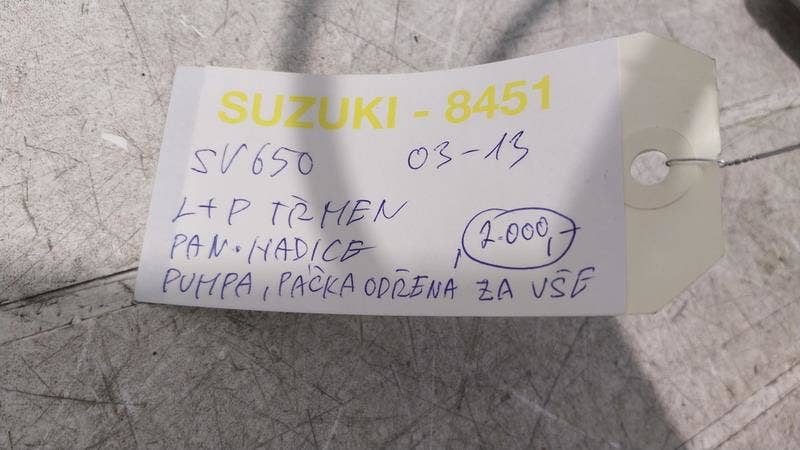 SUZUKI - 8451
SV650 03-13
L+P TŘMEN
PAN. HADICE, 2.000,-
PUMPA, PÁČKA ODŘENA ZA VŠE